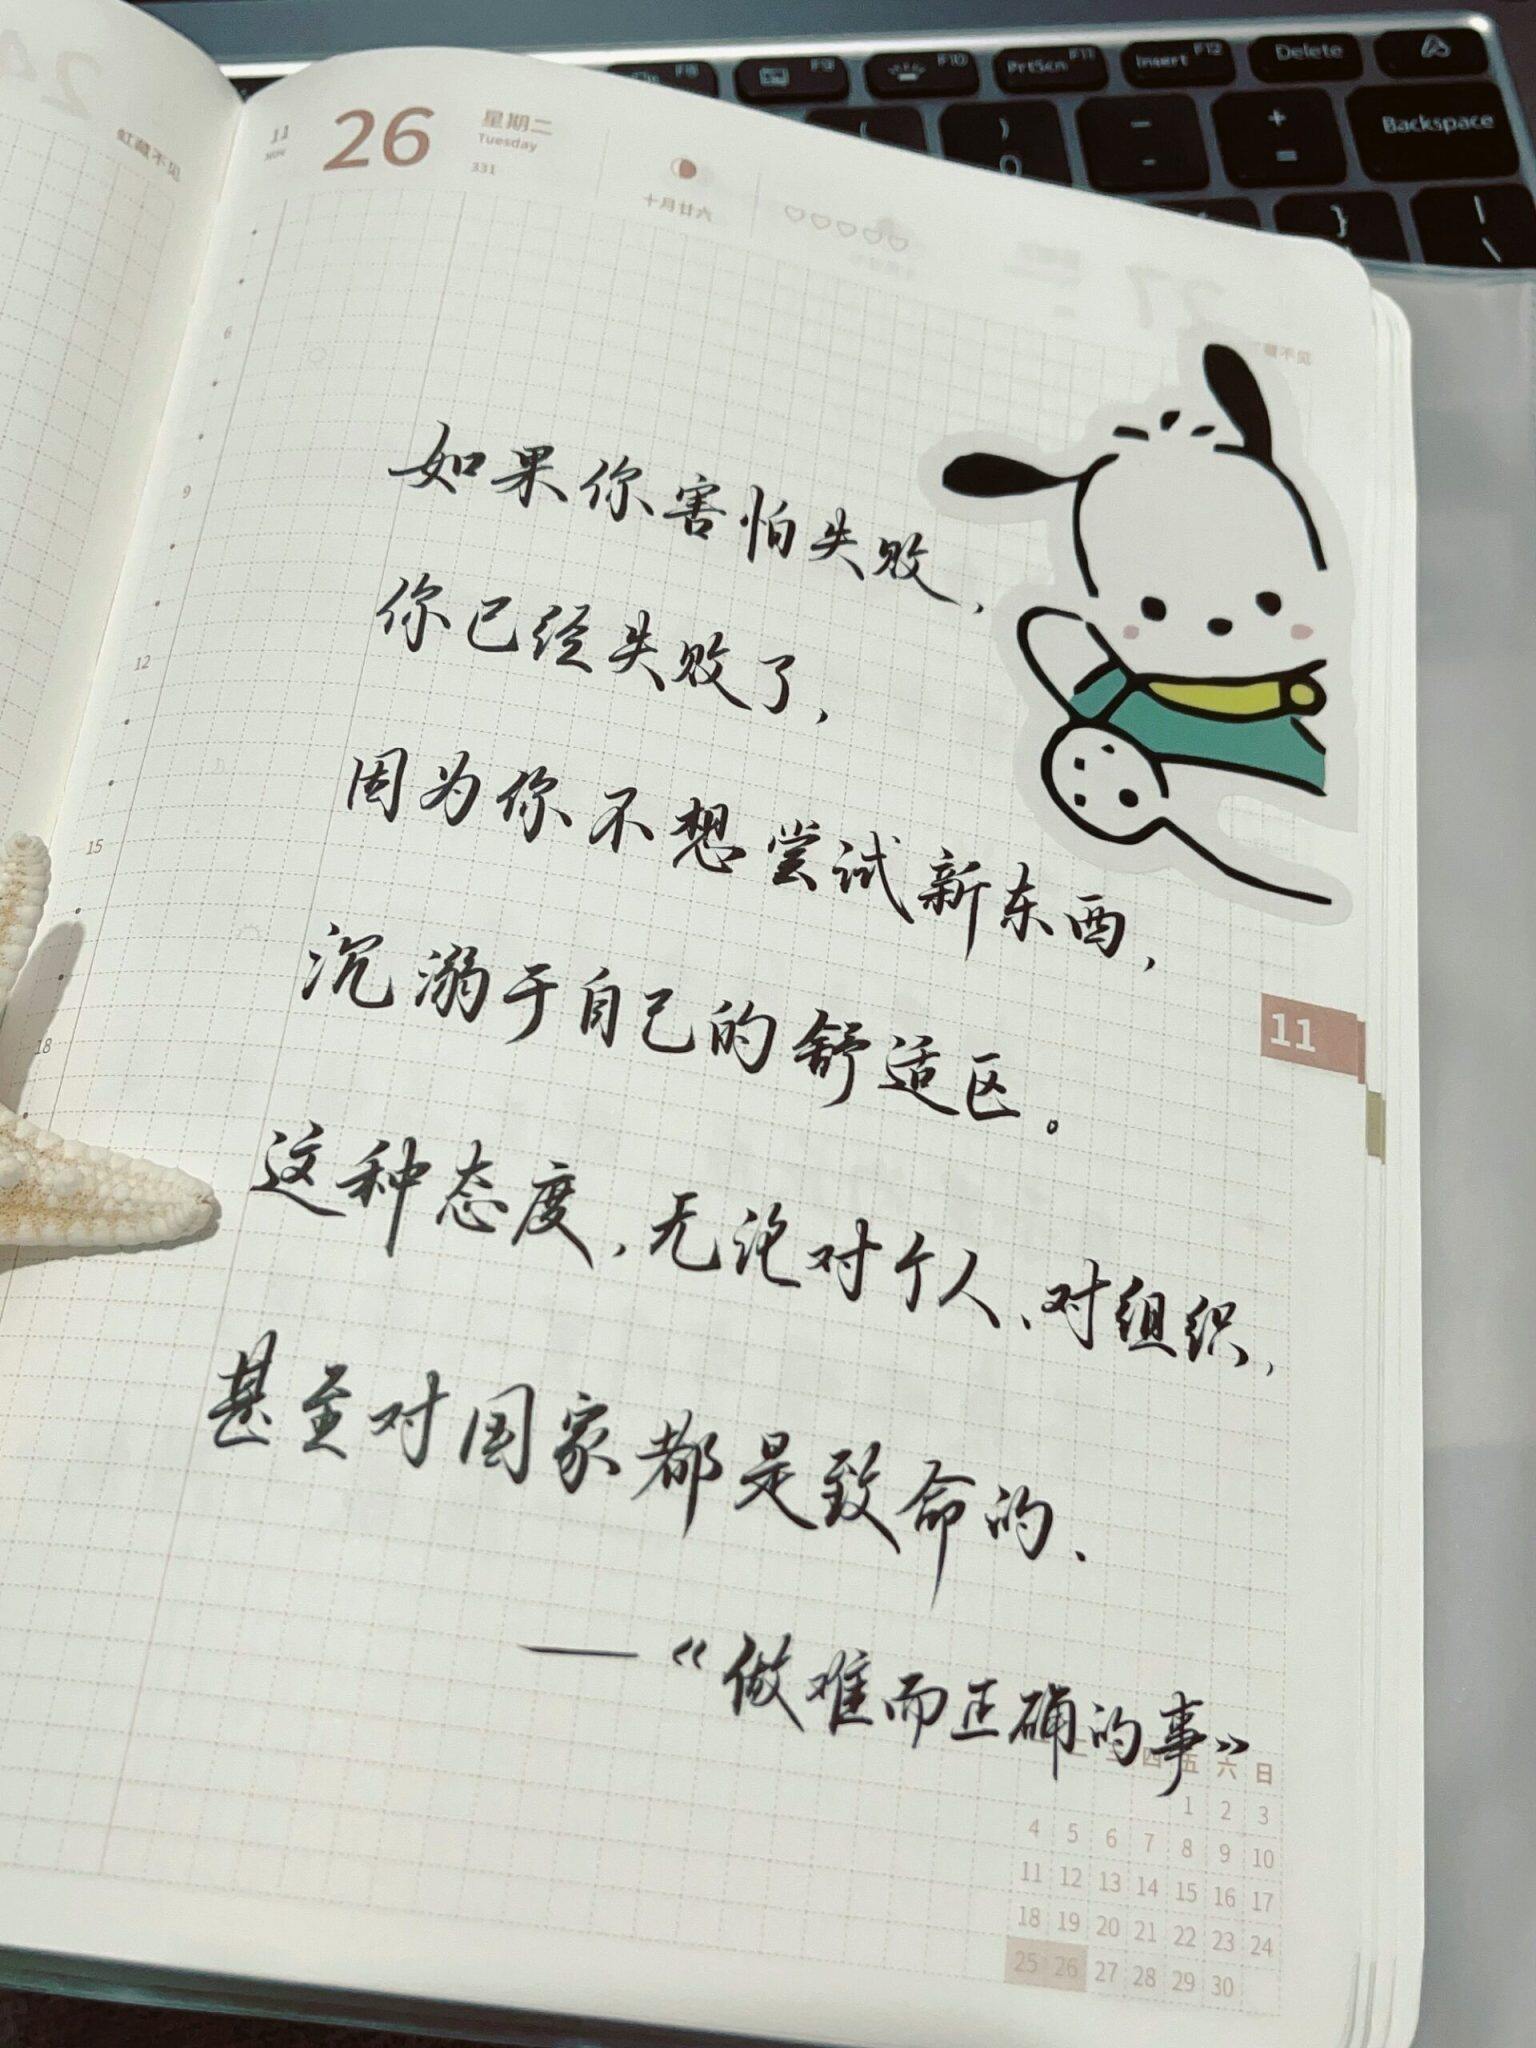 虹藏不见
11
NOV
26
星期二
Tuesday
331
十月廿六
F8
F9
F10
PrtScn F11
Insert F12
Delete
Backspace
6
9
12
15
18
如果你害怕失败，
你已经失败了，
因为你不想尝试新东西，
沉溺于自己的舒适区。
这种态度，无论对个人、对组织，
甚至对国家都是致命的、
——《做难而正确的事》
11
四 五 六 日
1 2 3
4 5 6 7 8 9 10
11 12 13 14 15 16 17
18 19 20 21 22 23 24
25 26 27 28 29 30